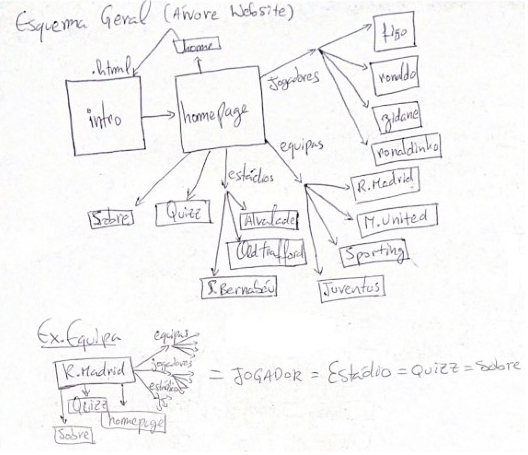 Esquema Geral (Árvore Website)
home
.html
intro
homepage
jogadores
figo
ronaldo
zidane
ronaldinho
equipas
R.Madrid
M.United
Sporting
Juventus
estádios
Alvalade
Old trafford
S.Bernabéu
Sobre
Quizz
Ex.Equipa
R.Madrid
equipas
jogadores
estádios
Quizz
homepage
Sobre
= JOGADOR = Estádio = QUIZZ = Sobre